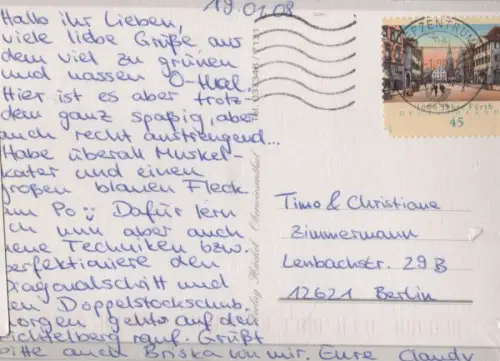 19.01.08
Hallo ihr Lieben,
viele liebe Grüße aus
dem viel zu grünen
und nassen O-thal.
Hier ist es aber trotz-
dem ganz spaßig, aber
auch recht anstrengend...
Habe überall Muskel-
kater und einen
großen blauen Fleck
am Po Dafür lern
ich nun aber auch
neue Techniken bzw.
perfektioniere den
Diagonalschritt und
den Doppelstockschub.
Morgen gehts auf den
Fichtelberg rauf. Grüßt
bitte auch Briska von mir. Eure Clandy
Timo & Christiane
Zimmermann
Lenbachstr. 29 B
12621 Berlin
1000 Jahre Fürth
DEUTSCHLAND
45
BRIEFZENTRUM
Oberwiesenthal